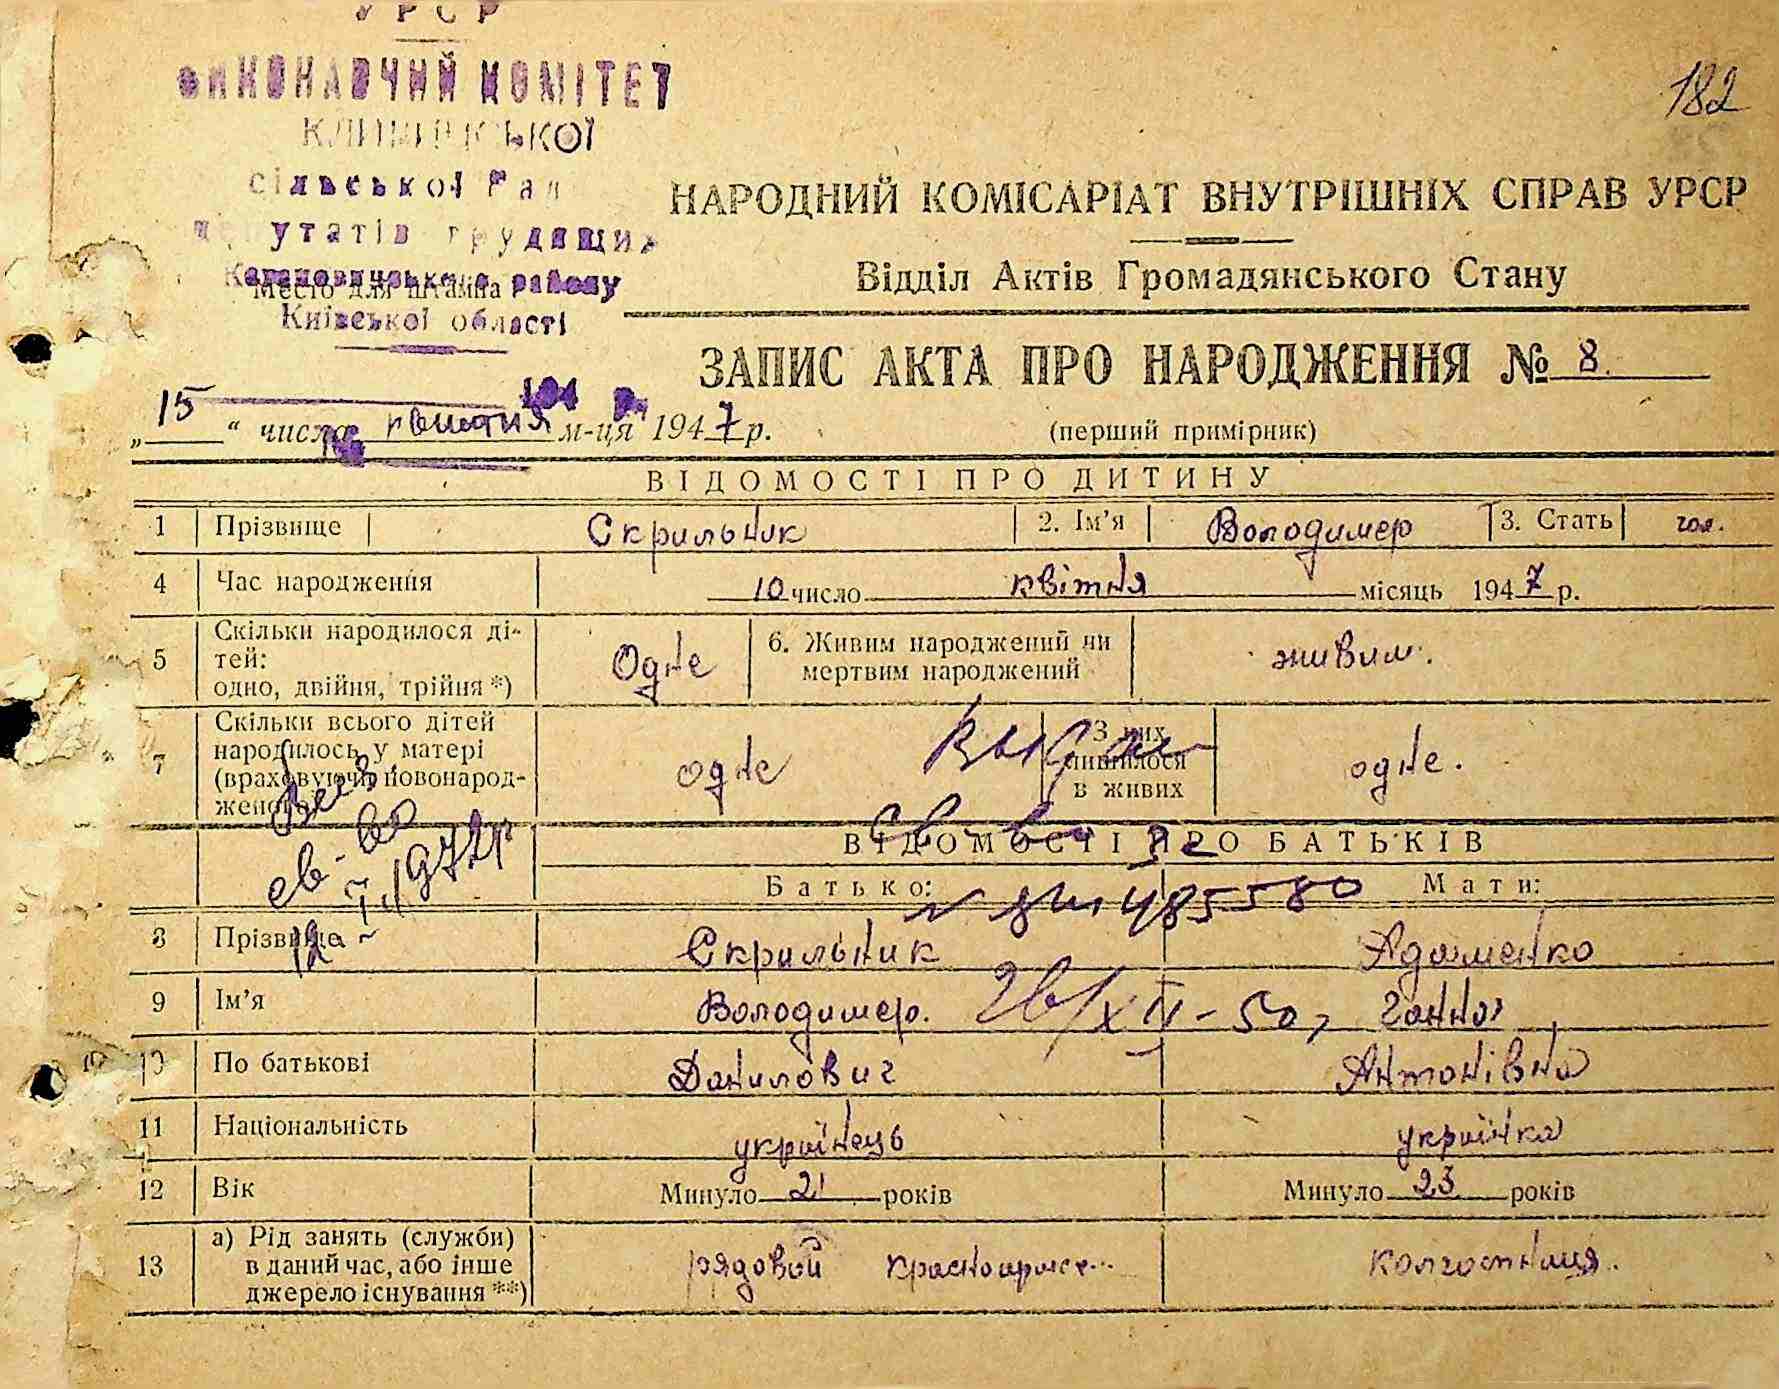 УРСР
ВИКОНАВЧИЙ КОМІТЕТ
182
сільської Рад
депутатів трудящих
Кагановичського району
Место для штампа
Київської області
НАРОДНИЙ КОМІСАРІАТ ВНУТРІШНІХ СПРАВ УРСР
Відділ Актів Громадянського Стану
ЗАПИС АКТА ПРО НАРОДЖЕННЯ № 8.
194 р.
„15“ числа квитня м-ця 1947 р.
(перший примірник)
ВІДОМОСТІ ПРО ДИТИНУ
1 Прізвище Скрильник 2. Ім'я Володимер 3. Стать чол.
4 Час народження 10 число квітня місяць 1947 р.
5 Скільки народилося ді-
тей:
одно, двійня, трійня *) Одне 6. Живим народжений чи
мертвим народжений живим.
7 Скільки всього дітей
народилось у матері
(враховуючи новонарод-
женого) одне З них
лишилося
в живих одне.
ВІДОМОСТІ ПРО БАТЬКІВ
Батько: Мати:
св-во
1972р
485580
8 Прізвище Скрильник Адаменко
9 Ім'я Володимер. Ганна
26/XII-50,
10 По батькові Данилович Антонівна
11 Національність українець українка
12 Вік Минуло 21 років Минуло 23 років
13 а) Рід занять (служби)
в даний час, або інше
джерело існування **) рядовой красноарме... колгосниця.